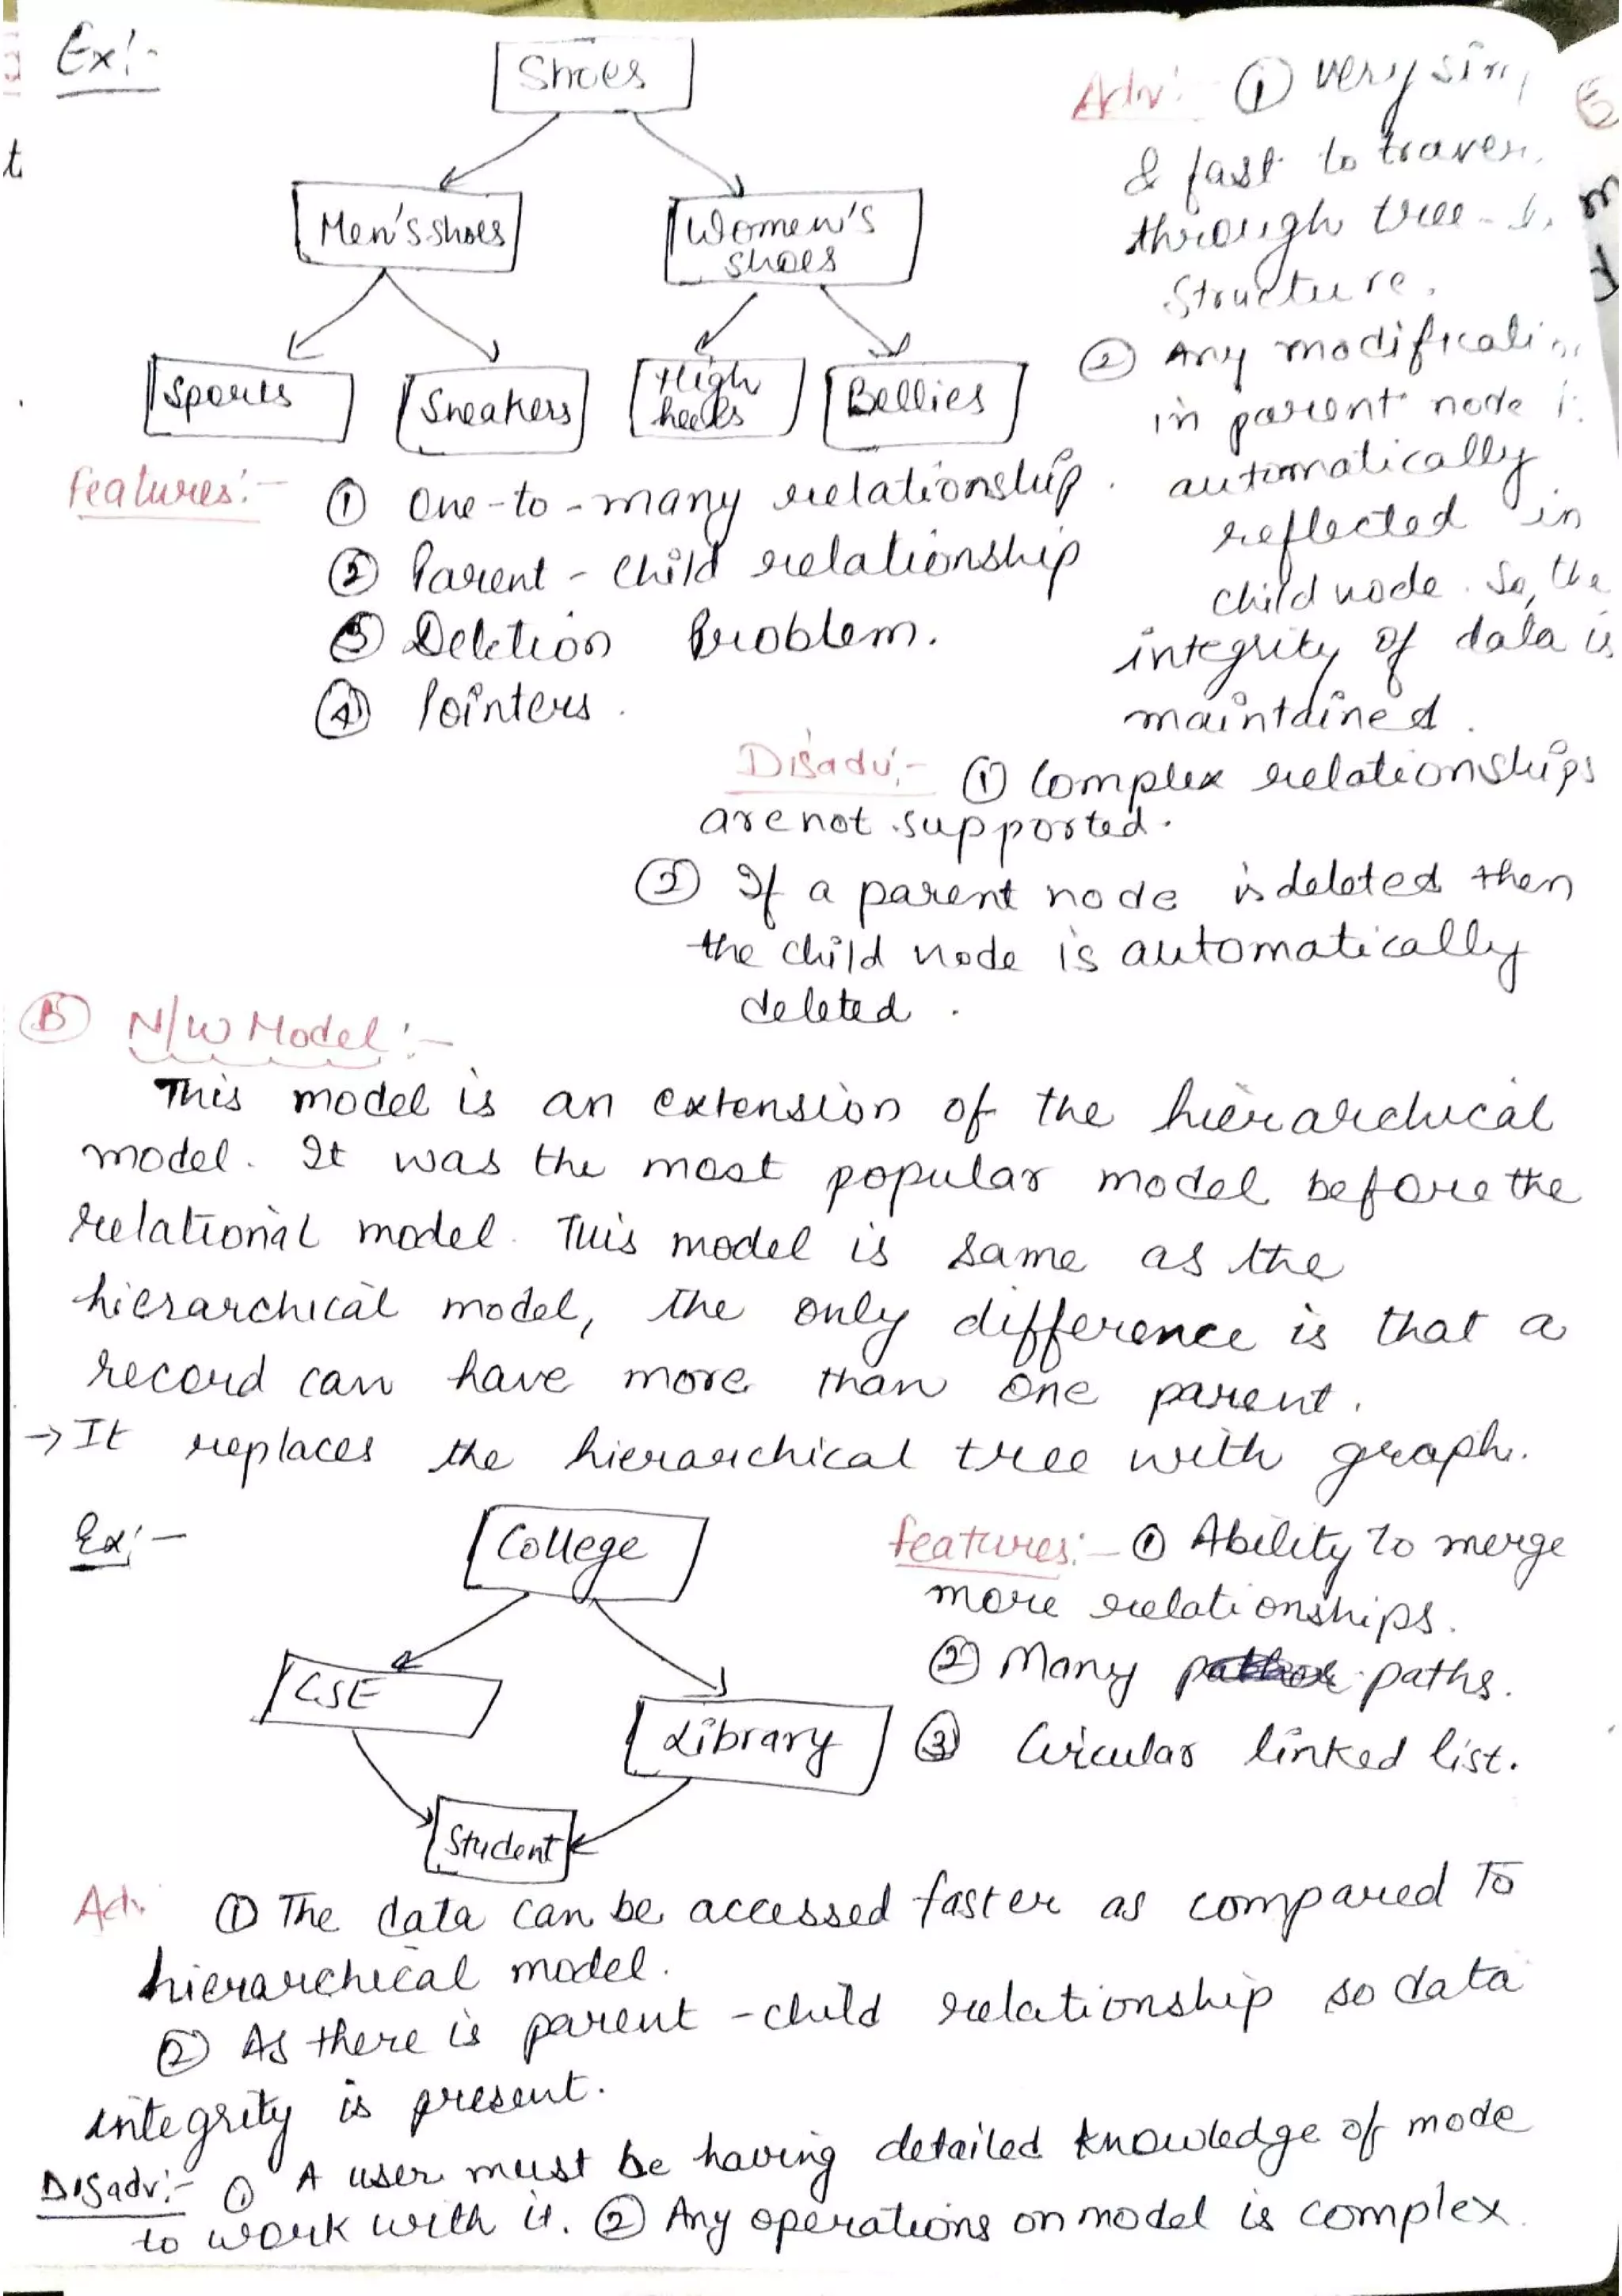 Ex:-
Shoes
Men's shoes
Women's
shoes
Sports
Sneakers
High
heels
Bellies
Adv:- ① very
& fast to
through tree
structure.
② Any
in parent node
automatically
reflected in
child node. So, the
integrity of data is
maintained.
features:-
① One-to-many relationship.
② Parent-child relationship
③ Deletion Problem.
④ Pointers.
Disadv:- ① Complex relationships
are not supported.
② If a parent node is deleted then
the child node is automatically
deleted.
Ⓑ N/W Model:-
This model is an extension of the hierarchical
model. It was the most popular model before the
relational model. This model is same as the
hierarchical model, the only difference is that a
record can have more than one parent.
→ It replaces the hierarchical tree with graph.
Ex:-
College
CSE
Library
Student
features:- ① Ability to merge
more relationships.
② Many paths.
③ Circular linked list.
Adv. ① The data can be accessed faster as compared to
hierarchical model.
② As there is parent-child relationship so data
integrity is present.
Disadv:- ① A user must be having detailed knowledge of mode
to work with it. ② Any operations on model is complex.